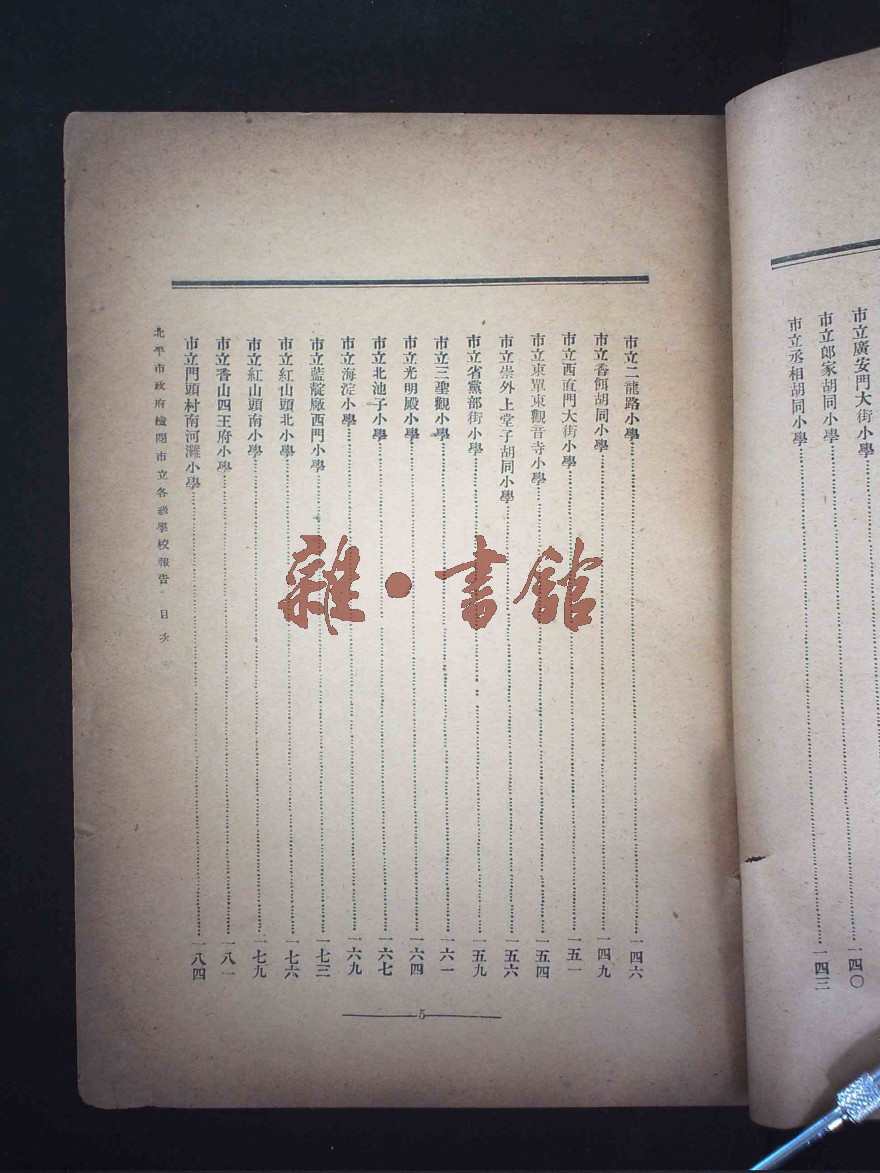 市立廣安門大街小學……一四〇
市立郎家胡同小學
市立丞相胡同小學……一四三
市立二龍路小學……一四六
市立香餌胡同小學……一四九
市立西直門大街小學……一五一
市立東單東觀音寺小學……一五四
市立崇外上堂子胡同小學……一五六
市立省黨部街小學……一五九
市立三聖觀小學……一六一
市立光明殿小學……一六四
市立北池子小學……一六七
市立海淀小學……一六九
市立藍靛廠西門小學……一七三
市立紅山頭北小學……一七六
市立紅山頭南小學……一七九
市立香山四王府小學……一八一
市立門頭村南河灘小學……一八四
北平市政府檢閱市立各級學校報告 目次
5
雜·書館